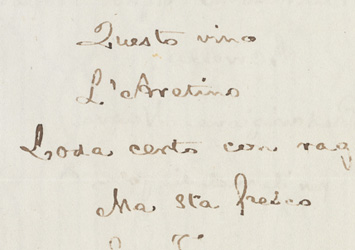 Questo vino
L'Aretino
Loda certo con
Ma sta fresco